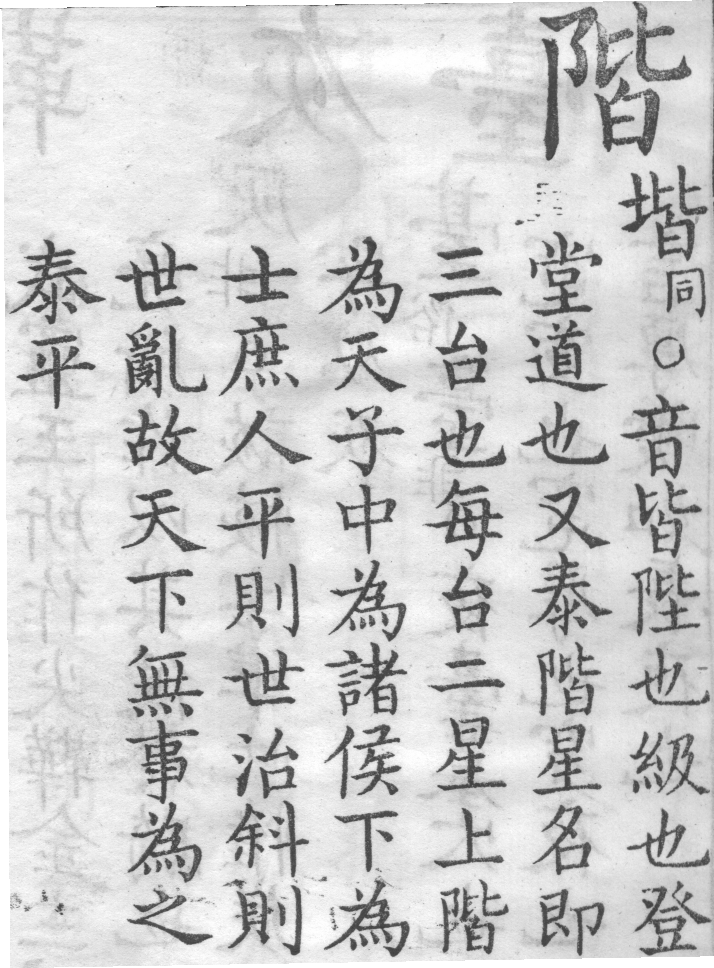 階
堦同○音皆陛也級也登
堂道也又泰階星名即
三台也每台二星上階
為天子中為諸侯下為
士庶人平則世治斜則
世亂故天下無事為之
泰平